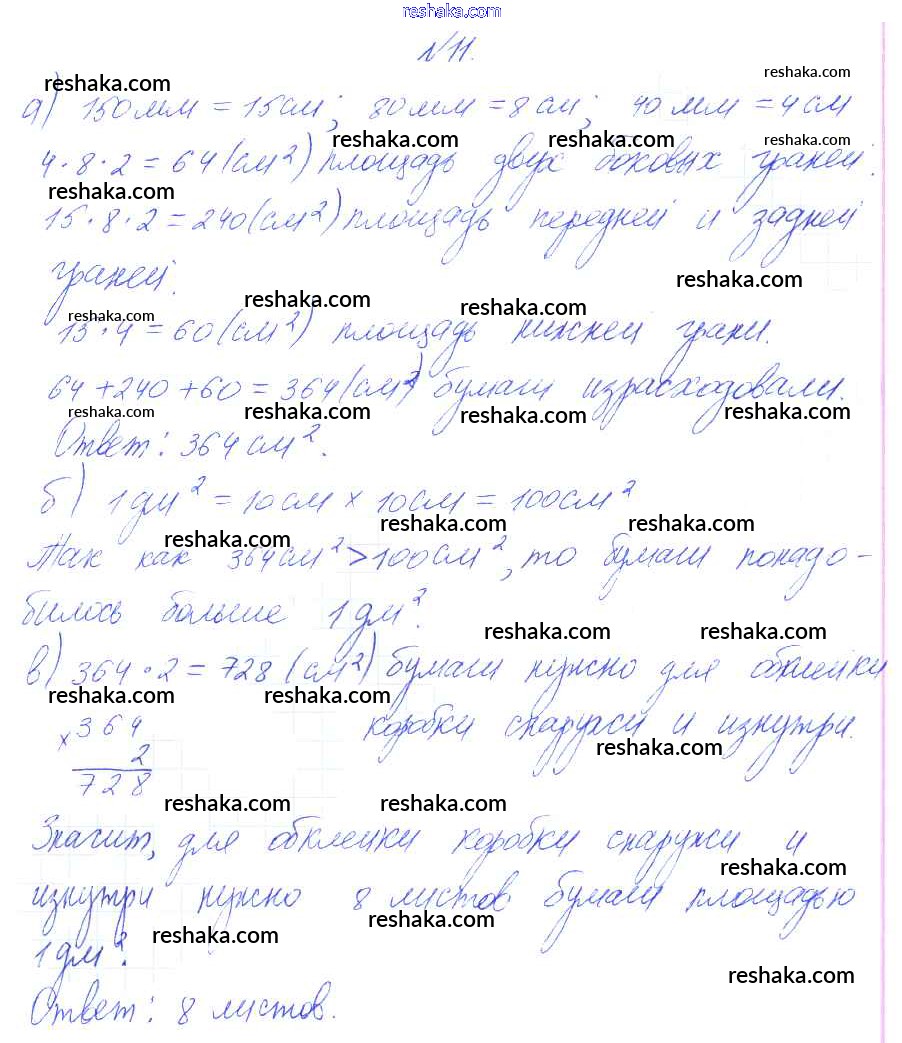 reshaka.com
№11.
reshaka.com reshaka.com
а) 150мм = 15см; 80мм = 8см; 40мм = 4см
reshaka.com reshaka.com reshaka.com
4·8·2 = 64(см²) площадь двух боковых граней.
reshaka.com
15·8·2 = 240(см²) площадь передней и задней
граней.
reshaka.com reshaka.com reshaka.com reshaka.com
15·4 = 60(см²) площадь нижней грани.
64+240+60 = 364(см²) бумаги израсходовали.
reshaka.com reshaka.com reshaka.com reshaka.com
Ответ: 364см².
б) 1дм² = 10см × 10см = 100см²
reshaka.com reshaka.com reshaka.com
Так как 364см² > 100см², то бумаги понадо-
билось больше 1дм².
reshaka.com reshaka.com
в) 364·2 = 728 (см²) бумаги нужно для обклейки
reshaka.com reshaka.com
коробки снаружи и изнутри.
×364
2
728
reshaka.com
reshaka.com reshaka.com
Значит, для обклейки коробки снаружи и
reshaka.com
изнутри нужно 8 листов бумаги площадью
reshaka.com
1дм².
reshaka.com
Ответ: 8 листов.